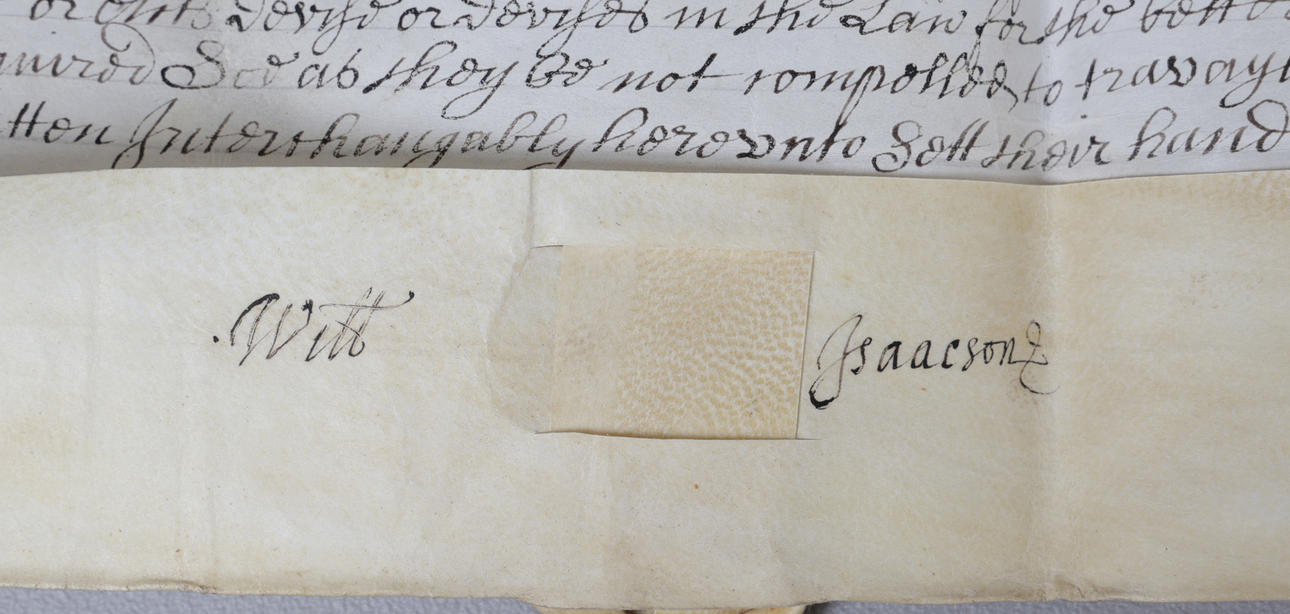 devise or devises in the Law for the bett
quired Soe as they be not compelled to travayl
tten Interchangably herevnto Sett their hand
Will Isaacson